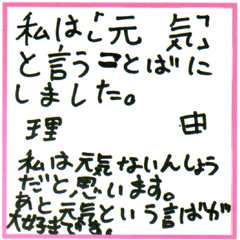 私は「元　気」
と言うことばに
しました。
理　　由
私は元気ないんしょう
だと思います。
あと、元気という言ばが
大好きです。